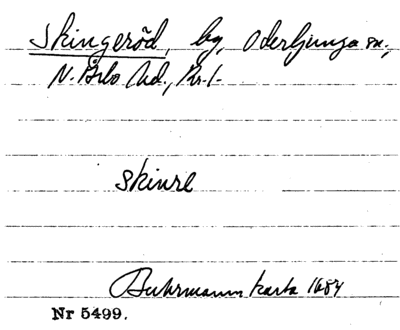 Skingeröd, by, Oderljunga sn.,
N. Åsbo hd., Kr. l.
Skinre
Buhrmann karta 1684
Nr 5499.